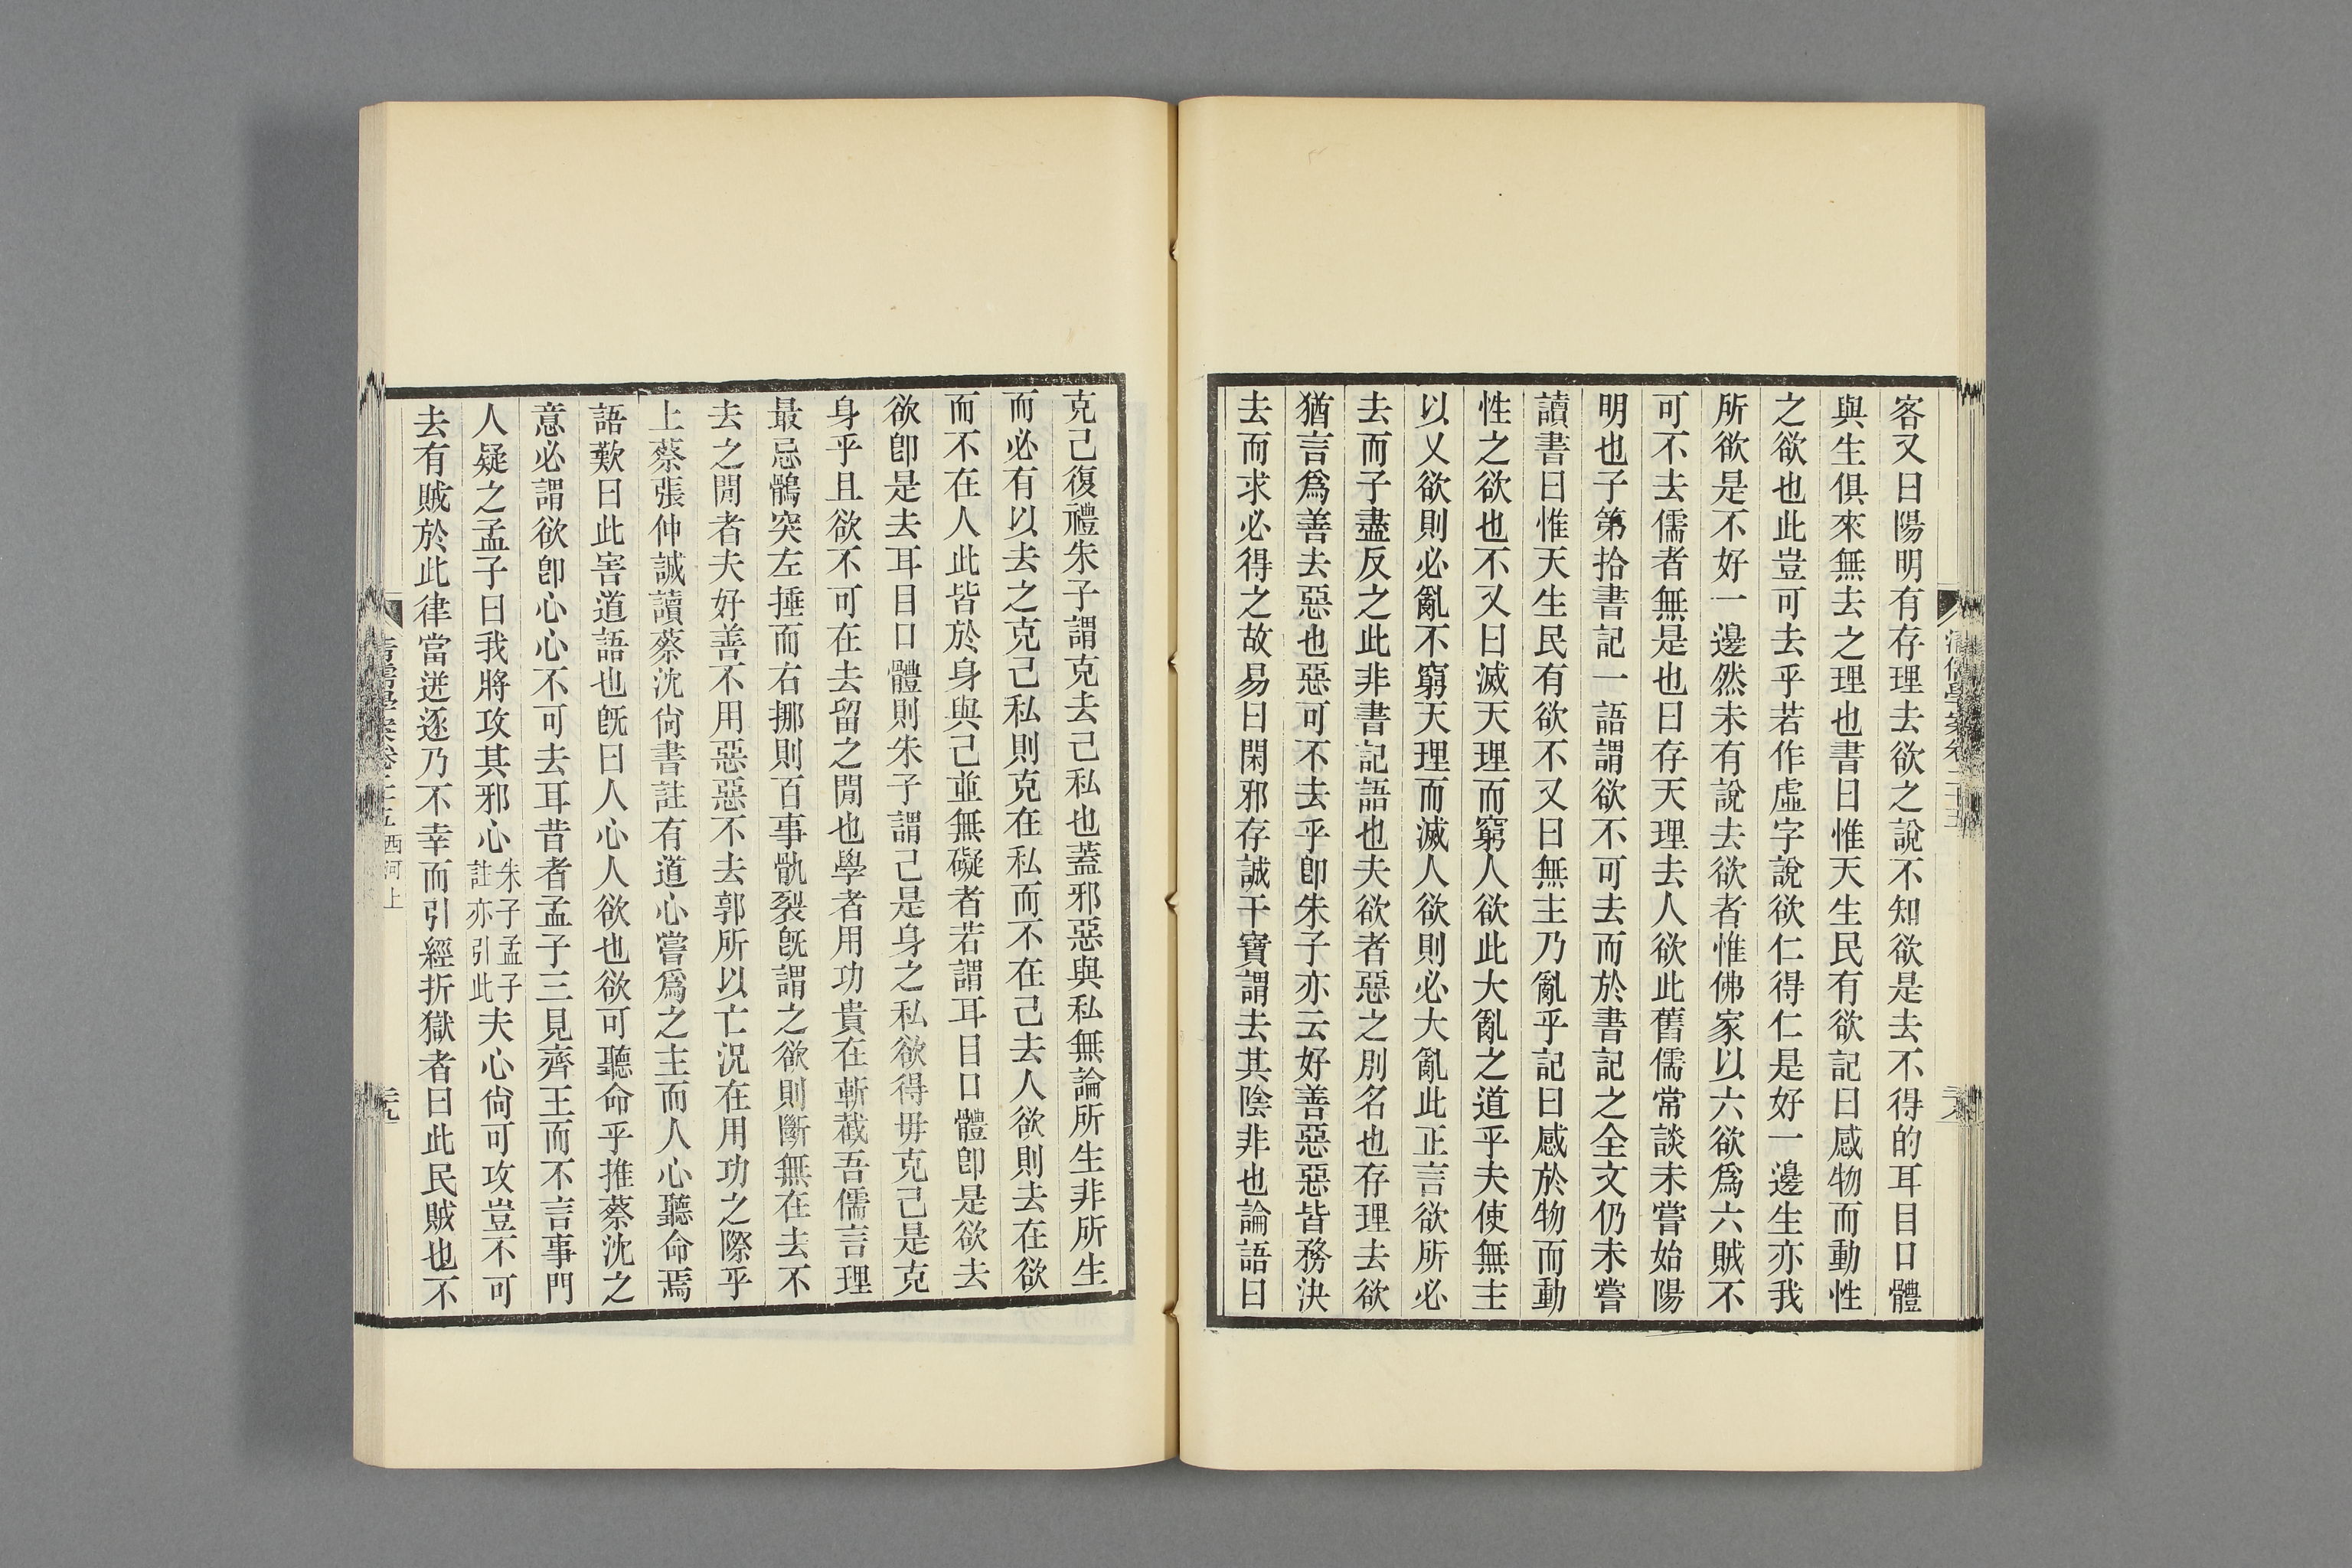 客又曰陽明有存理去欲之說不知欲是去不得的耳目口體
與生俱來無去之理也書曰惟天生民有欲記曰感物而動性
之欲也此豈可去乎若作虛字說欲仁得仁是好一邊生亦我
所欲是不好一邊然未有說去欲者惟佛家以六欲爲六賊不
可不去儒者無是也曰存天理去人欲此舊儒常談未嘗始陽
明也子第拾書記一語謂欲不可去而於書記之全文仍未嘗
讀書曰惟天生民有欲不又曰無主乃亂乎記曰感於物而動
性之欲也不又曰滅天理而窮人欲此大亂之道乎夫使無主
以乂欲則必亂不窮天理而滅人欲則必大亂此正言欲所必
去而子盡反之此非書記語也夫欲者惡之別名也存理去欲
猶言爲善去惡也惡可不去乎卽朱子亦云好善惡惡皆務決
去而求必得之故易曰閑邪存誠干寶謂去其陰非也論語曰
清儒學案卷二十五
克己復禮朱子謂克去己私也蓋邪惡與私無論所生非所生
而必有以去之克己私則克在私而不在己去人欲則去在欲
而不在人此皆於身與己並無礙者若謂耳目口體卽是欲去
欲卽是去耳目口體則朱子謂己是身之私欲得毋克己是克
身乎且欲不可在去留之閒也學者用功貴在斬截吾儒言理
最忌鶻突左捶而右挪則百事骩裂旣謂之欲則斷無在去不
去之閒者夫好善不用惡惡不去郭所以亡況在用功之際乎
上蔡張仲誠讀蔡沈尙書註有道心嘗爲之主而人心聽命焉
語歎曰此害道語也旣曰人心人欲也欲可聽命乎推蔡沈之
意必謂欲卽心心不可去耳昔者孟子三見齊王而不言事門
人疑之孟子曰我將攻其邪心朱子孟子註亦引此夫心尙可攻豈不可
去有賊於此律當迸逐乃不幸而引經折獄者曰此民賊也不
清儒學案卷二十五 西河上